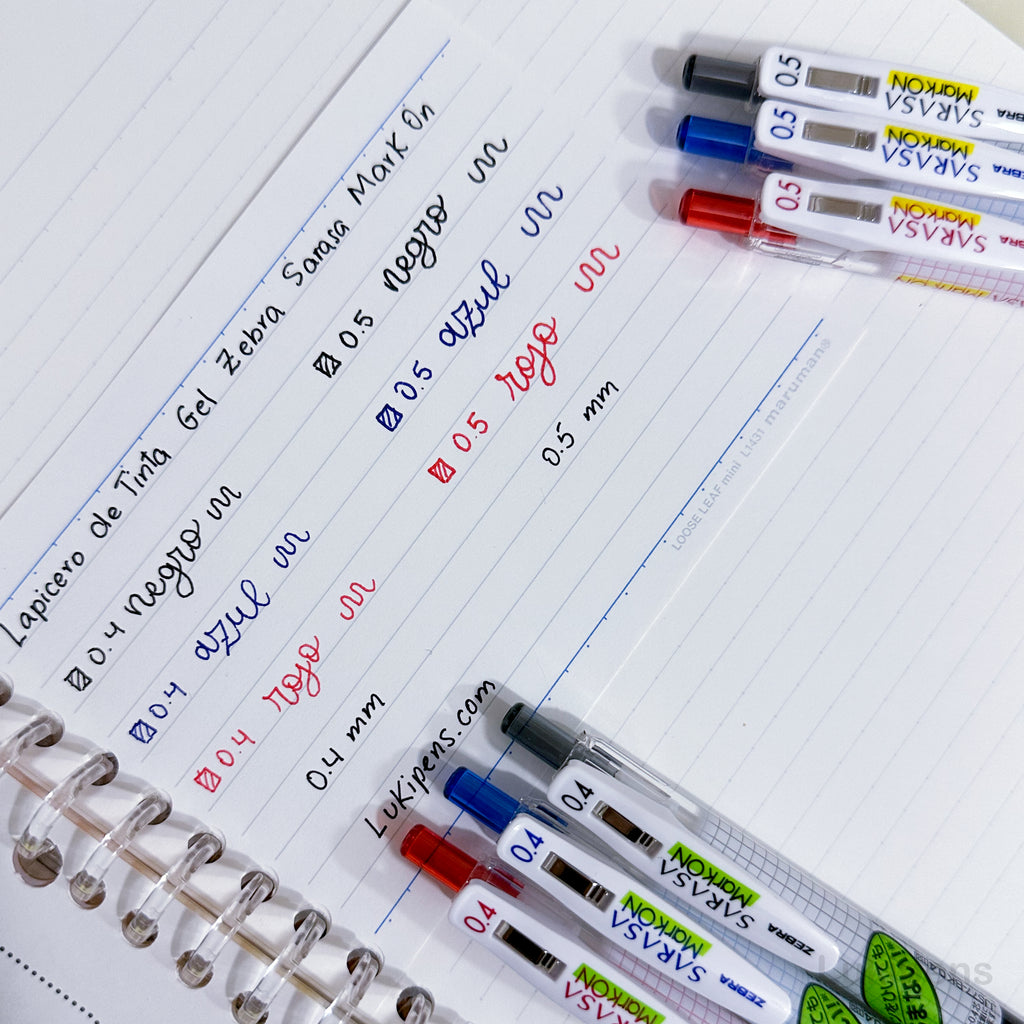 Lapicero de Tinta Gel Zebra Sarasa Mark On
0.4 negro
0.5 negro
0.4 azul
0.5 azul
0.4 rojo
0.5 rojo
0.4 mm
0.5 mm
LuKipens.com
LOOSE LEAF mini L1431 maruman®
0.5 SARASA MarkON ZEBRA
0.5 SARASA MarkON ZEBRA
0.5 SARASA MarkON ZEBRA
0.4 SARASA MarkON ZEBRA
0.4 SARASA MarkON ZEBRA
0.4 SARASA MarkON